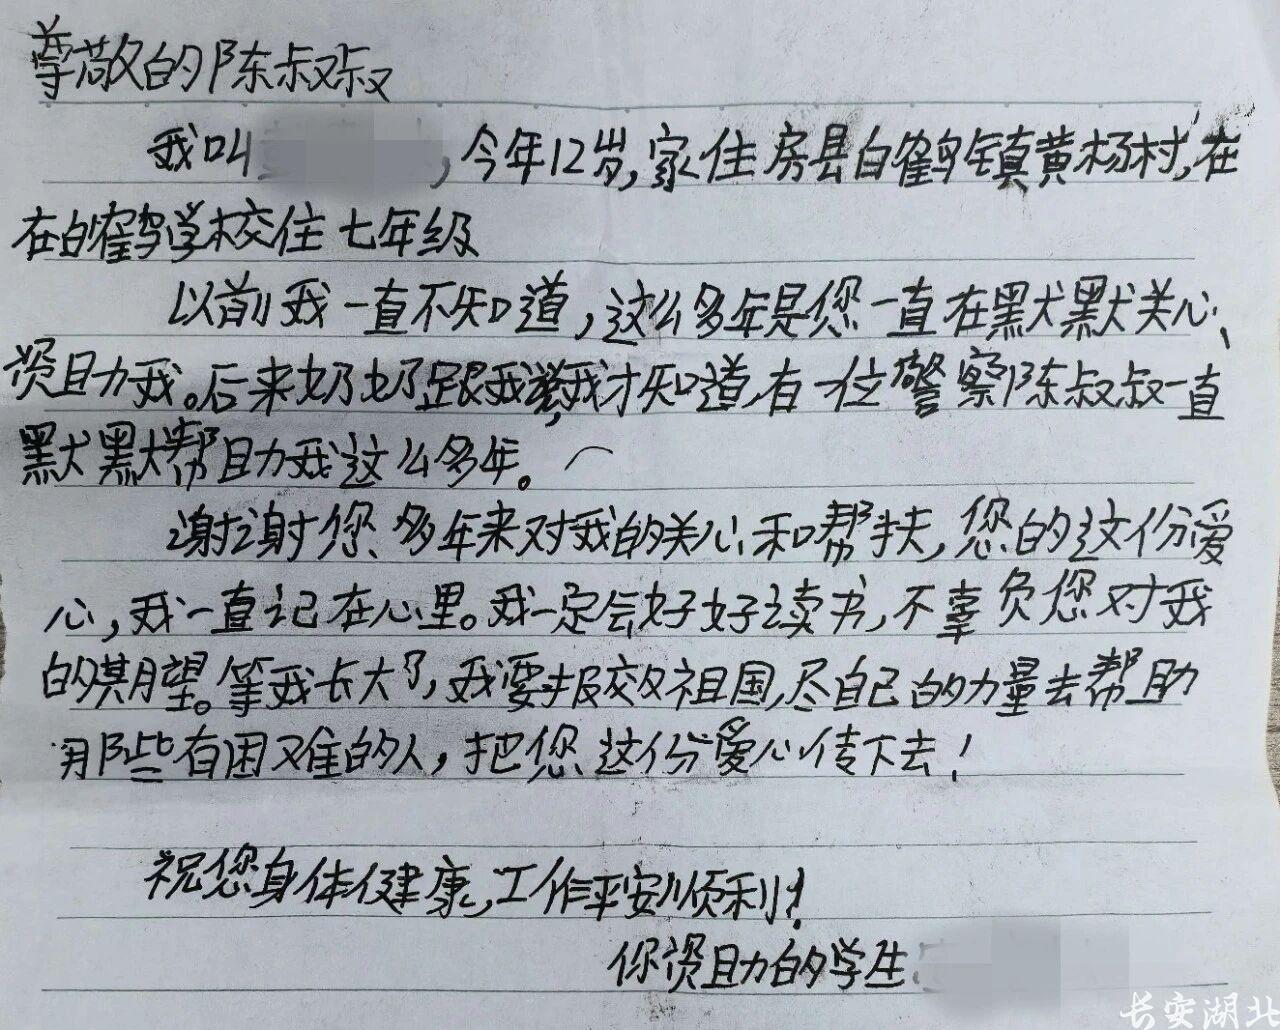 尊敬的陈叔叔
我叫 ,今年12岁,家住房县白鹤镇黄杨村,在
在白鹤学校住七年级
以前我一直不知道,这么多年是您一直在默默关心、
资助我。后来奶奶跟我说,我才知道,有一位警察陈叔叔一直
默默帮助我这么多年。
谢谢您多年来对我的关心和帮扶,您的这份爱
心,我一直记在心里。我一定会好好读书,不辜负您对我
的期望。等我长大了,我要报效祖国,尽自己的力量去帮助
那些有困难的人,把您这份爱心传下去!
祝您身体健康,工作平安顺利!
你资助的学生:
长安湖北